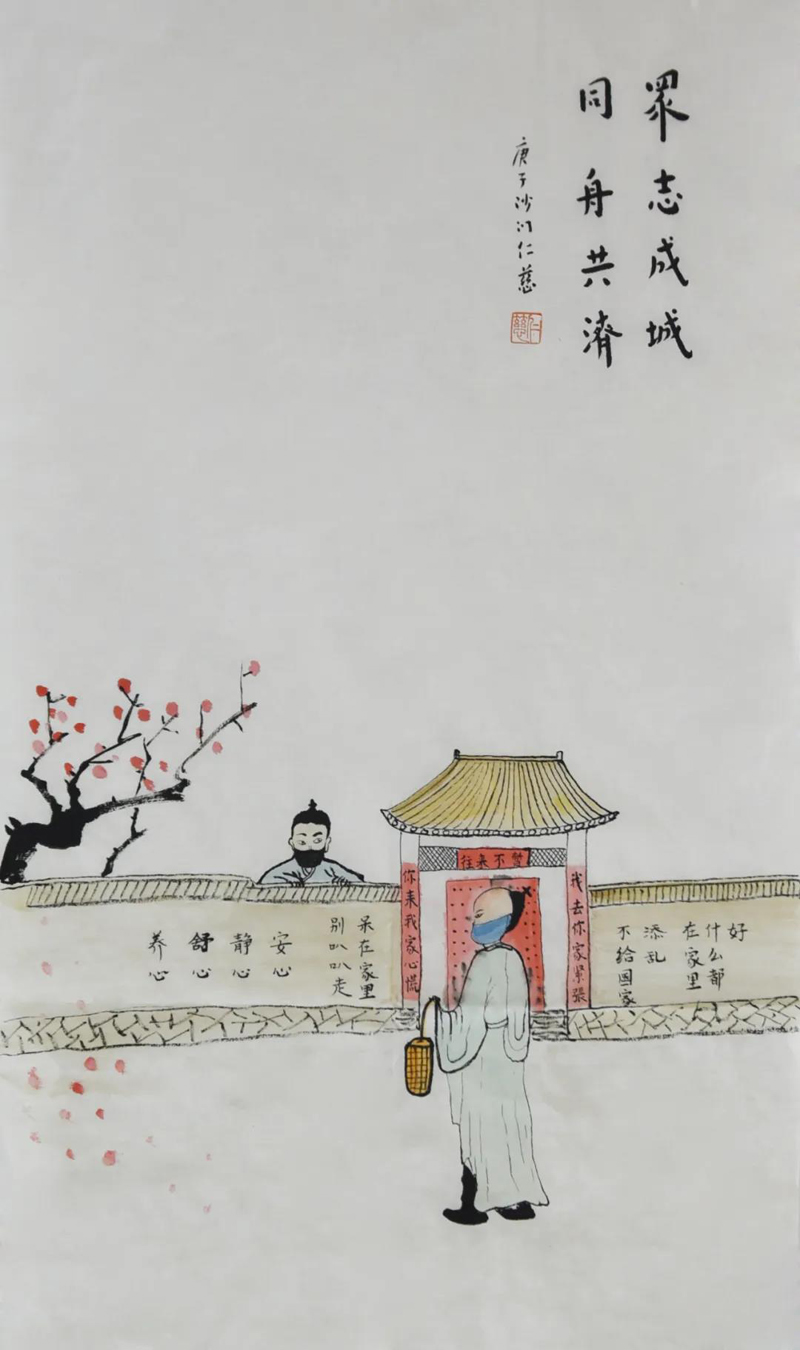 眾志成城
同舟共濟
庚子沙门仁慈
仁慈
暂不来往
我去你家紧張
你来我家心慌
好
什么都
在家里
添乱
不给国家
呆在家里
别叭叭走
安心
静心
舒心
养心